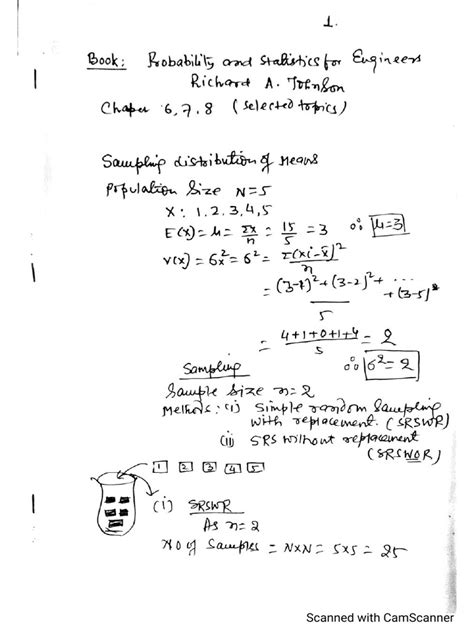 1.
Book: Probability and Statistics for Engineers
Richard A. Johnson
Chapter 6, 7, 8 (Selected topics)
Sampling distribution of Means
Population Size N=5
X: 1, 2, 3, 4, 5
E(X) = μ = Σx/n = 15/5 = 3 ∴ μ=3
V(X) = σx² = σ² = Σ(xi - x̄)²/n
= (3-1)² + (3-2)² + ... + (3-5)²/5
= 4+1+0+1+4/5 = 2
∴ σ² = 2
Sampling
Sample Size n=2
Methods: (i) Simple random Sampling
with replacement. (SRSWR)
(ii) SRS without replacement
(SRSWOR)
1 2 3 4 5
(i) SRSWR
As n=2
No of Samples = N×N = 5×5 = 25
Scanned with CamScanner